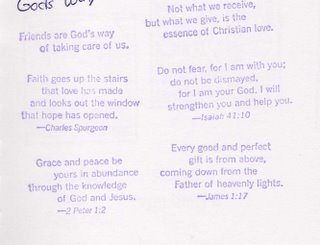 Gods Way
Friends are God's way
of taking care of us.
Faith goes up the stairs
that love has made
and looks out the window
that hope has opened.
—Charles Spurgeon
Grace and peace be
yours in abundance
through the knowledge
of God and Jesus.
—2 Peter 1:2
Not what we receive,
but what we give, is the
essence of Christian love.
Do not fear, for I am with you;
do not be dismayed,
for I am your God. I will
strengthen you and help you.
—Isaiah 41:10
Every good and perfect
gift is from above,
coming down from the
Father of heavenly lights.
—James 1:17